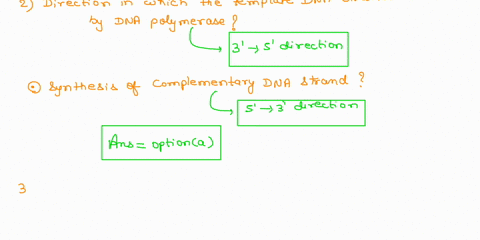 2) Direction in which the template DNA
by DNA polymerase ?
3' → 5' direction
Synthesis of Complementary DNA strand ?
5' → 3' direction
Ans = option (a)
3